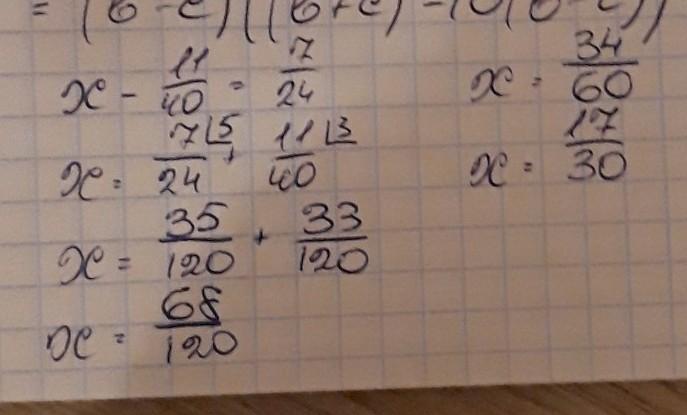 = (b - c)((b + c) - 10(b - c))
x - 11/40 = 7/24
x = 7⌊5/24 + 11⌊3/40
x = 35/120 + 33/120
x = 68/120
x = 34/60
x = 17/30